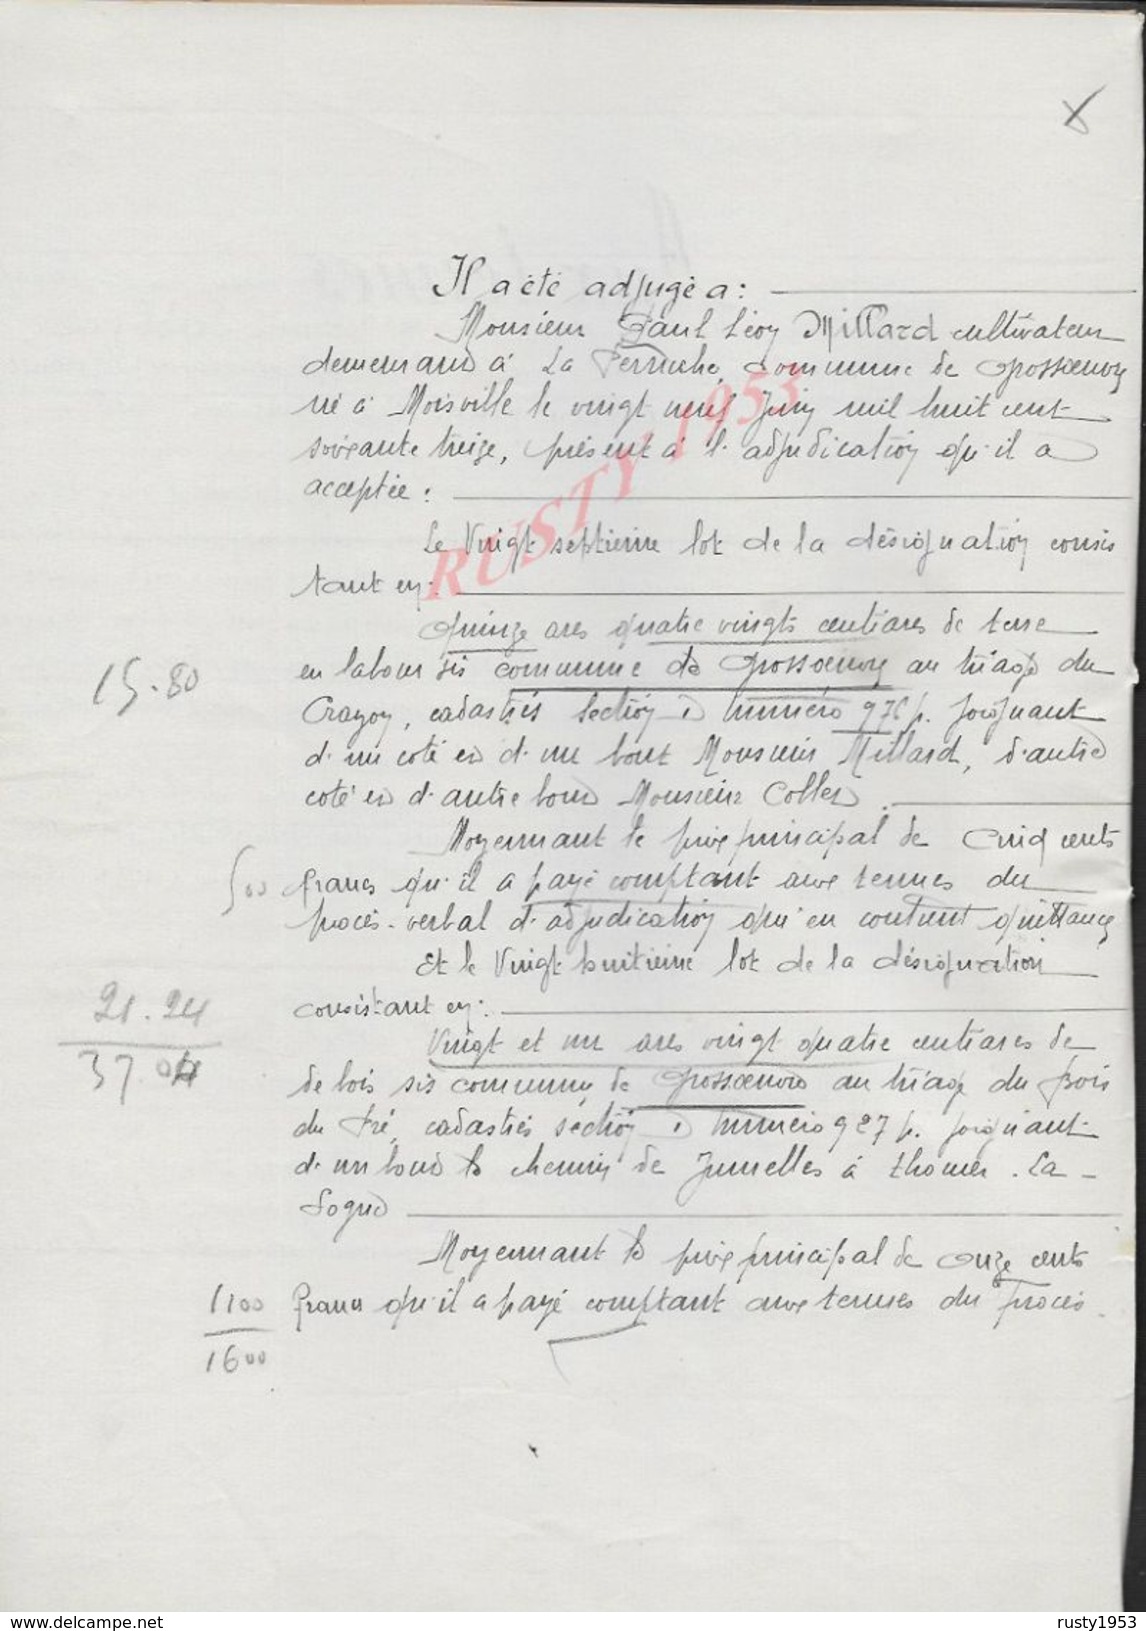 Il a été adjugé a :
Monsieur Paul Léon Millard cultivateur
demeurant à La Perruche, commune de Grossœuvre
né à Moisville le vingt neuf Juin mil huit cent
soixante treize, présent à l'adjudication qu'il a
acceptée :
Le Vingt septième lot de la désignation consis
tant en :
Quinze ares quatre vingts centiares de terre
en labour sis commune de Grossœuvre au triage du
15.80
Crayon, cadastrés section D numéro 976 p. joignant
d'un coté et d'un bout Monsieur Millard, d'autre
coté et d'autre bout Monsieur Collet.
Moyennant le prix principal de Cinq cents
500 francs qu'il a payé comptant aux termes du
procès-verbal d'adjudication qui en contient quittance
Et le Vingt huitième lot de la désignation
21.24
consistant en :
Vingt et un ares vingt quatre centiares de
37.04
de bois sis commune de Grossœuvre au triage du bois
du Pré, cadastrés section D numéro 927 p. joignant
d'un bout le chemin de Jumelles à Thomer. La-
Sogne
Moyennant le prix principal de Onze cents
1100 francs qu'il a payé comptant aux termes du procès.
1600
RUSTY 1953
www.delcampe.net
rusty1953